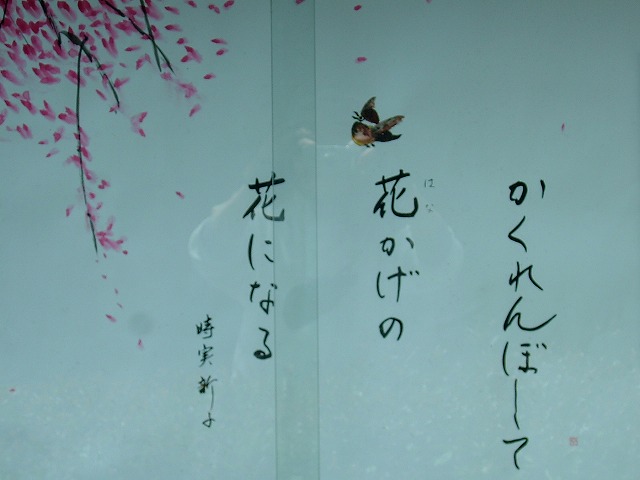 かくれんぼして
花かげの
はな
花になる
時実新子